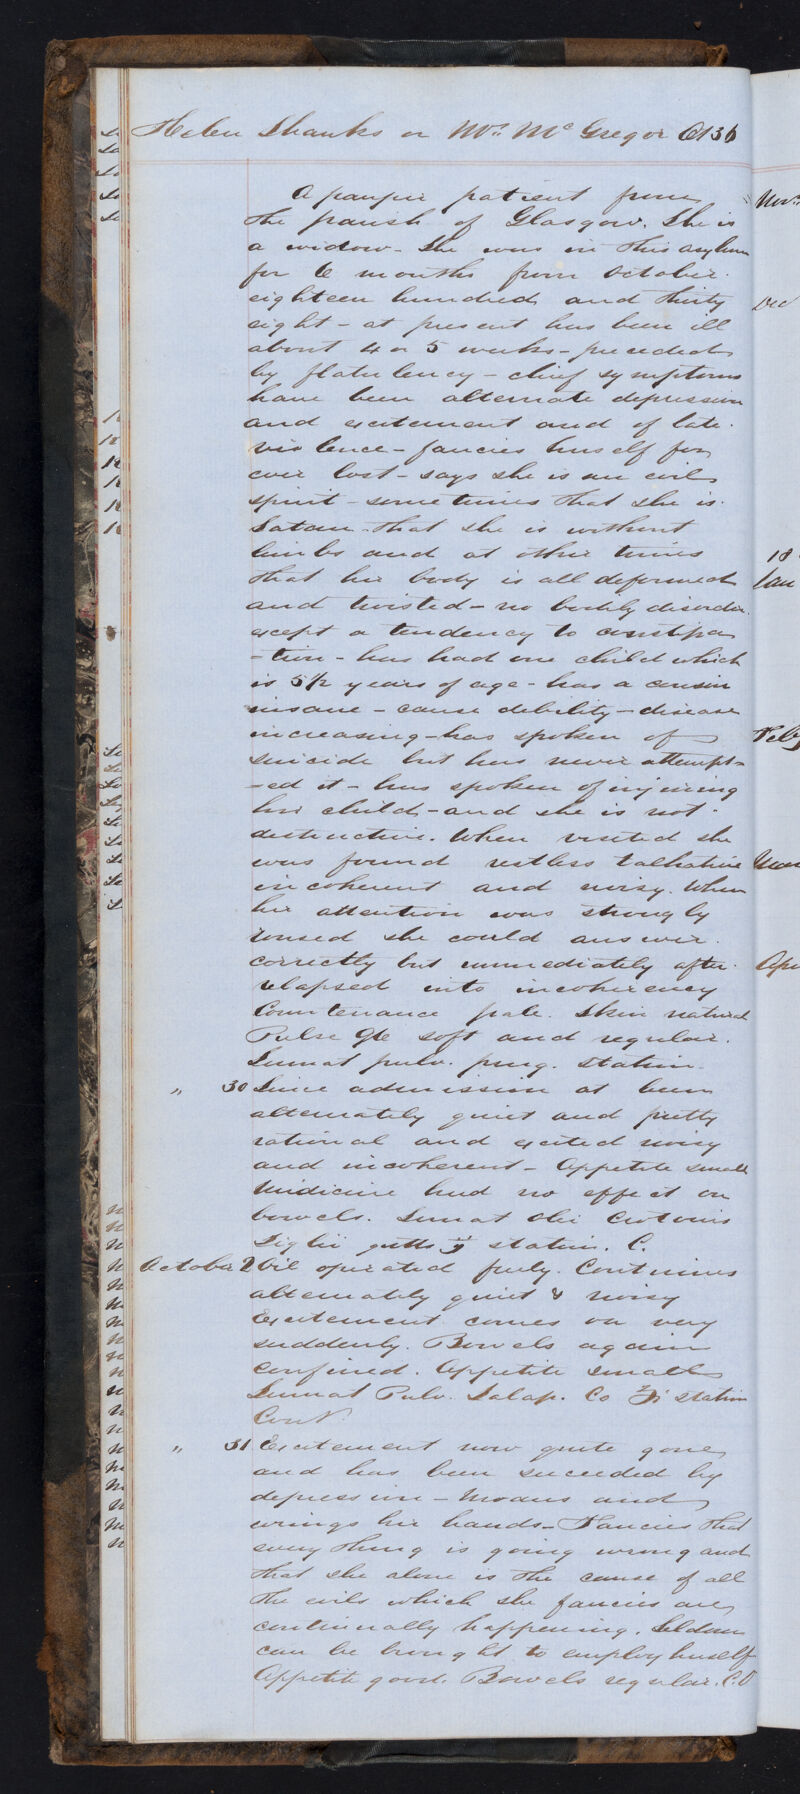 Helen Shanks or Mrs. McGregor Æt 36
A pauper patient from
the parish of Glasgow. She is
a widow - She was in this asylum
for 6 months from October
eighteen hundred and thirty
eight - at present has been ill
about 4 or 5 weeks - preceded
by flatulency - chief symptoms
have been alternate depression
and excitement and of late
violence - fancies herself for
ever lost - says she is an evil
spirit - sometimes that she is
Satan - that she is without
limbs and at other times
that her body is all deformed
and twisted - no bodily disorder
except a tendency to constipa
-tion - has had one child which
is 5½ years of age - has a cousin
insane - cause debility - disease
increasing - has spoken of
suicide but has never attempt-
-ed it - has spoken of injuring
her child - and she is not
destructive. When visited she
was found restless talkative
incoherent and noisy. When
her attention was strongly
roused she could answer
correctly but immediately after
relapsed into incoherency
Countenance pale. Skin natural
Pulse 96 soft and regular.
Sumat pulv. purg. statim.
" 30 Since admission at been
alternately quiet and pretty
rational and excited noisy
and incoherent - Appetite small
Medicine had no effect on
bowels. Sumat Olei Crotonis
Tiglii gutts ij statim. C.
October 2 Oil operated freely. Continues
alternately quiet & noisy
Excitement comes on very
suddenly. Bowels again
confined. Appetite small
Sumat Pulv. Jalap. Co ʒi statim
Cont.
" 31 Excitement now quite gone
and has been succeeded by
depression - Moans and
wrings her hands - Fancies that
every thing is going wrong and
that she alone is the cause of all
the evils which she fancies are
continually happening. Seldom
can be brought to employ herself
Appetite good. Bowels regular. C.O
Dec
18
Jan
Feby